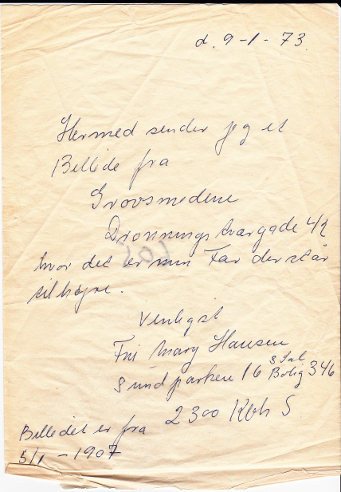 d. 9-1-73.
Hermed sender jeg et
Billede fra
Grovsmedene
Dronningstvargade 4/2
hvor det er min Far der står
til højre.
Venligst
Fru Mary Hansen
Sundparken 16 8 Sal
Bolig 346
2300 Kbh S
Billedet er fra
5/1 - 1907